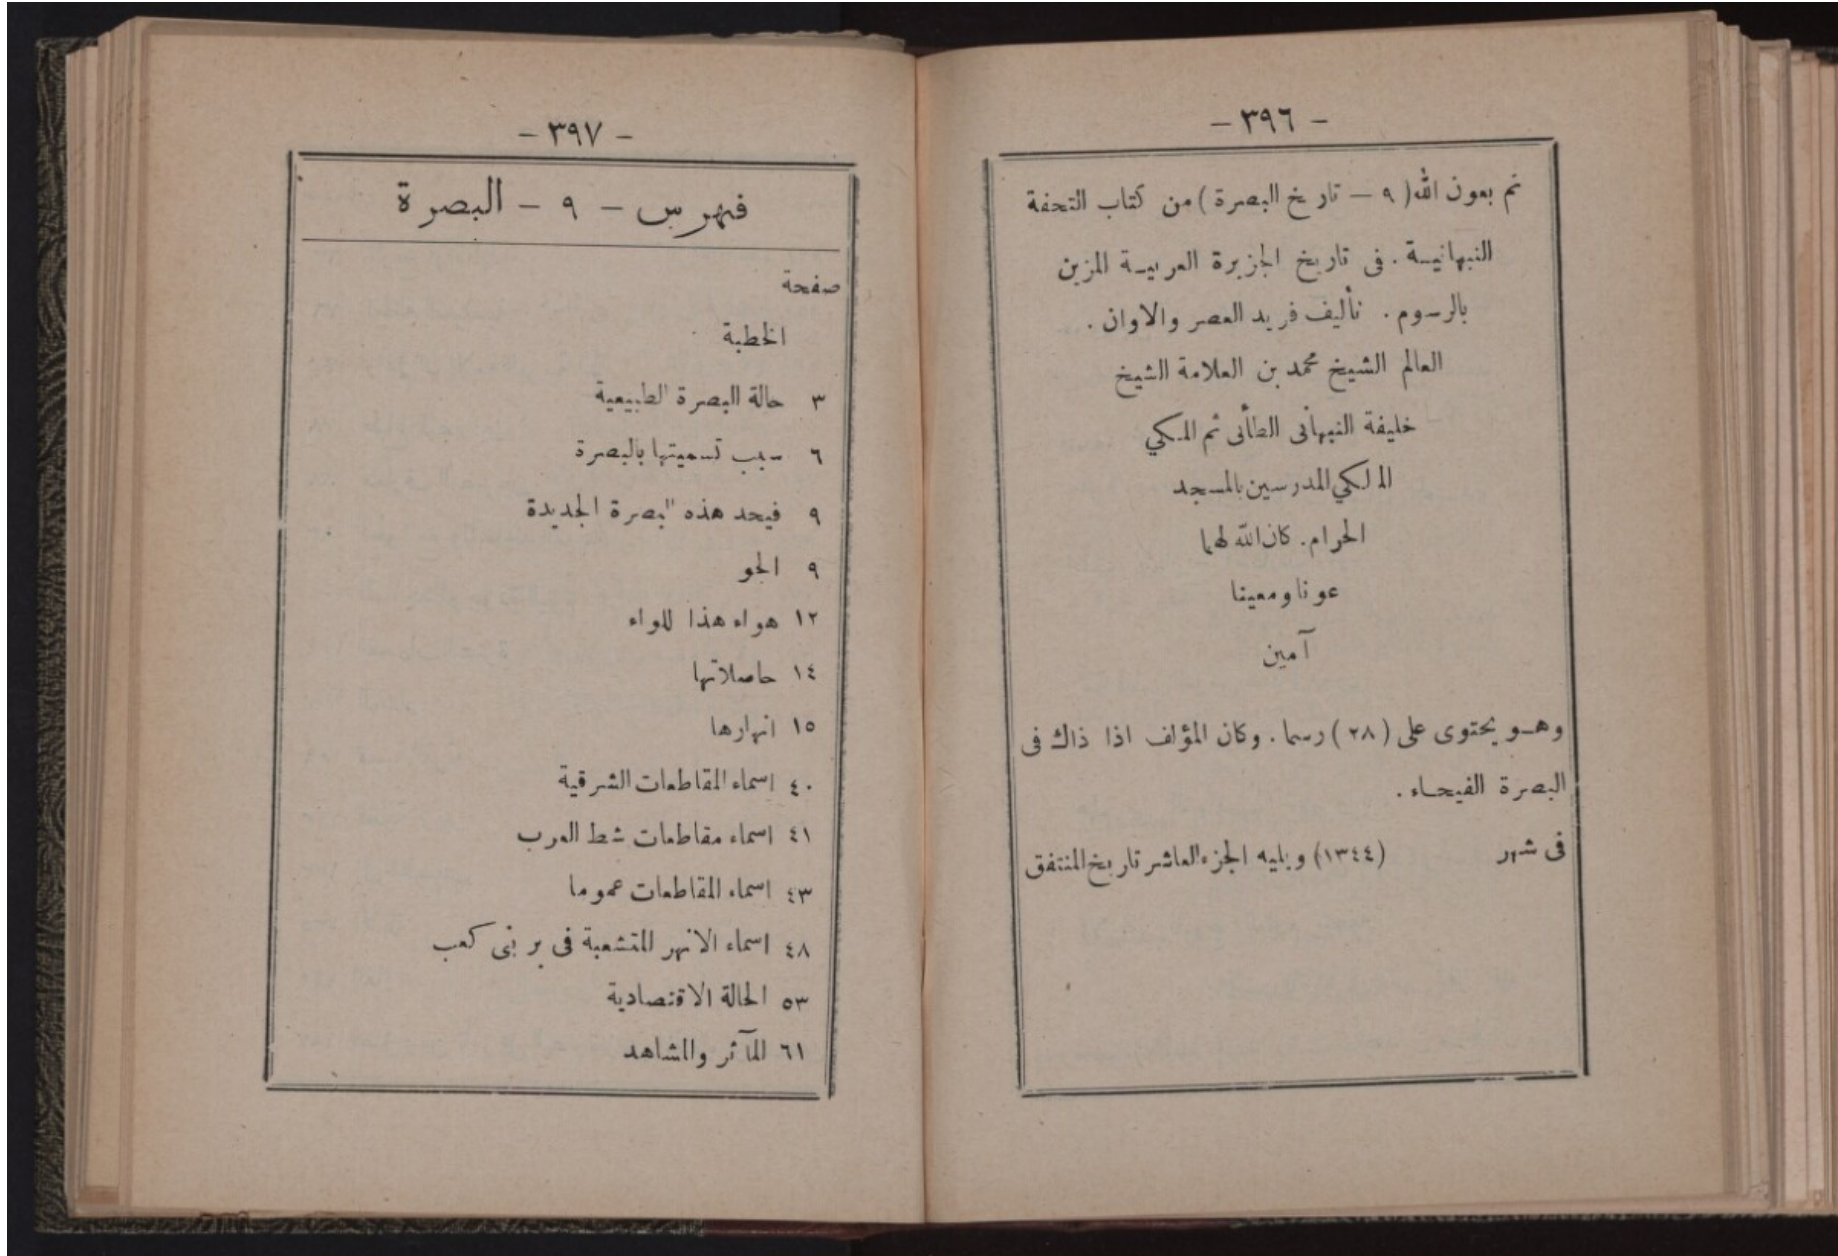 - ٣٩٦ -
تم بعون الله ( ٩ - تاريخ البصرة ) من كتاب التحفة
النبهانيـة . فى تاريخ الجزيرة العربيـة المزين
بالرسوم . تأليف فريد العصر والاوان .
العالم الشيخ محمد بن العلامة الشيخ
خليفة النبهانى الطائى ثم المكي
المالكي المدرسين بالمسجد
الحرام . كان الله لهما
عونا ومعينا
آمين
وهـو يحتوى على ( ٢٨ ) رسما . وكان المؤلف اذا ذاك فى
البصرة الفيحاء .
فى شهر (١٣٤٤) ويليه الجزء العاشر تاريخ المنتفق
- ٣٩٧ -
فهرس - ٩ - البصرة
صفحة
الخطبة
٣ حالة البصرة الطبيعية
٦ سبب تسميتها بالبصرة
٩ فيحد هذه البصرة الجديدة
٩ الجو
١٢ هواء هذا اللواء
١٤ حاصلاتها
١٥ انهارها
٤٠ اسماء المقاطعات الشرقية
٤١ اسماء مقاطعات شط العرب
٤٣ اسماء المقاطعات عموما
٤٨ اسماء الانهر المتشعبة فى بر بنى كعب
٥٣ الحالة الاقتصادية
٦١ المآثر والمشاهد